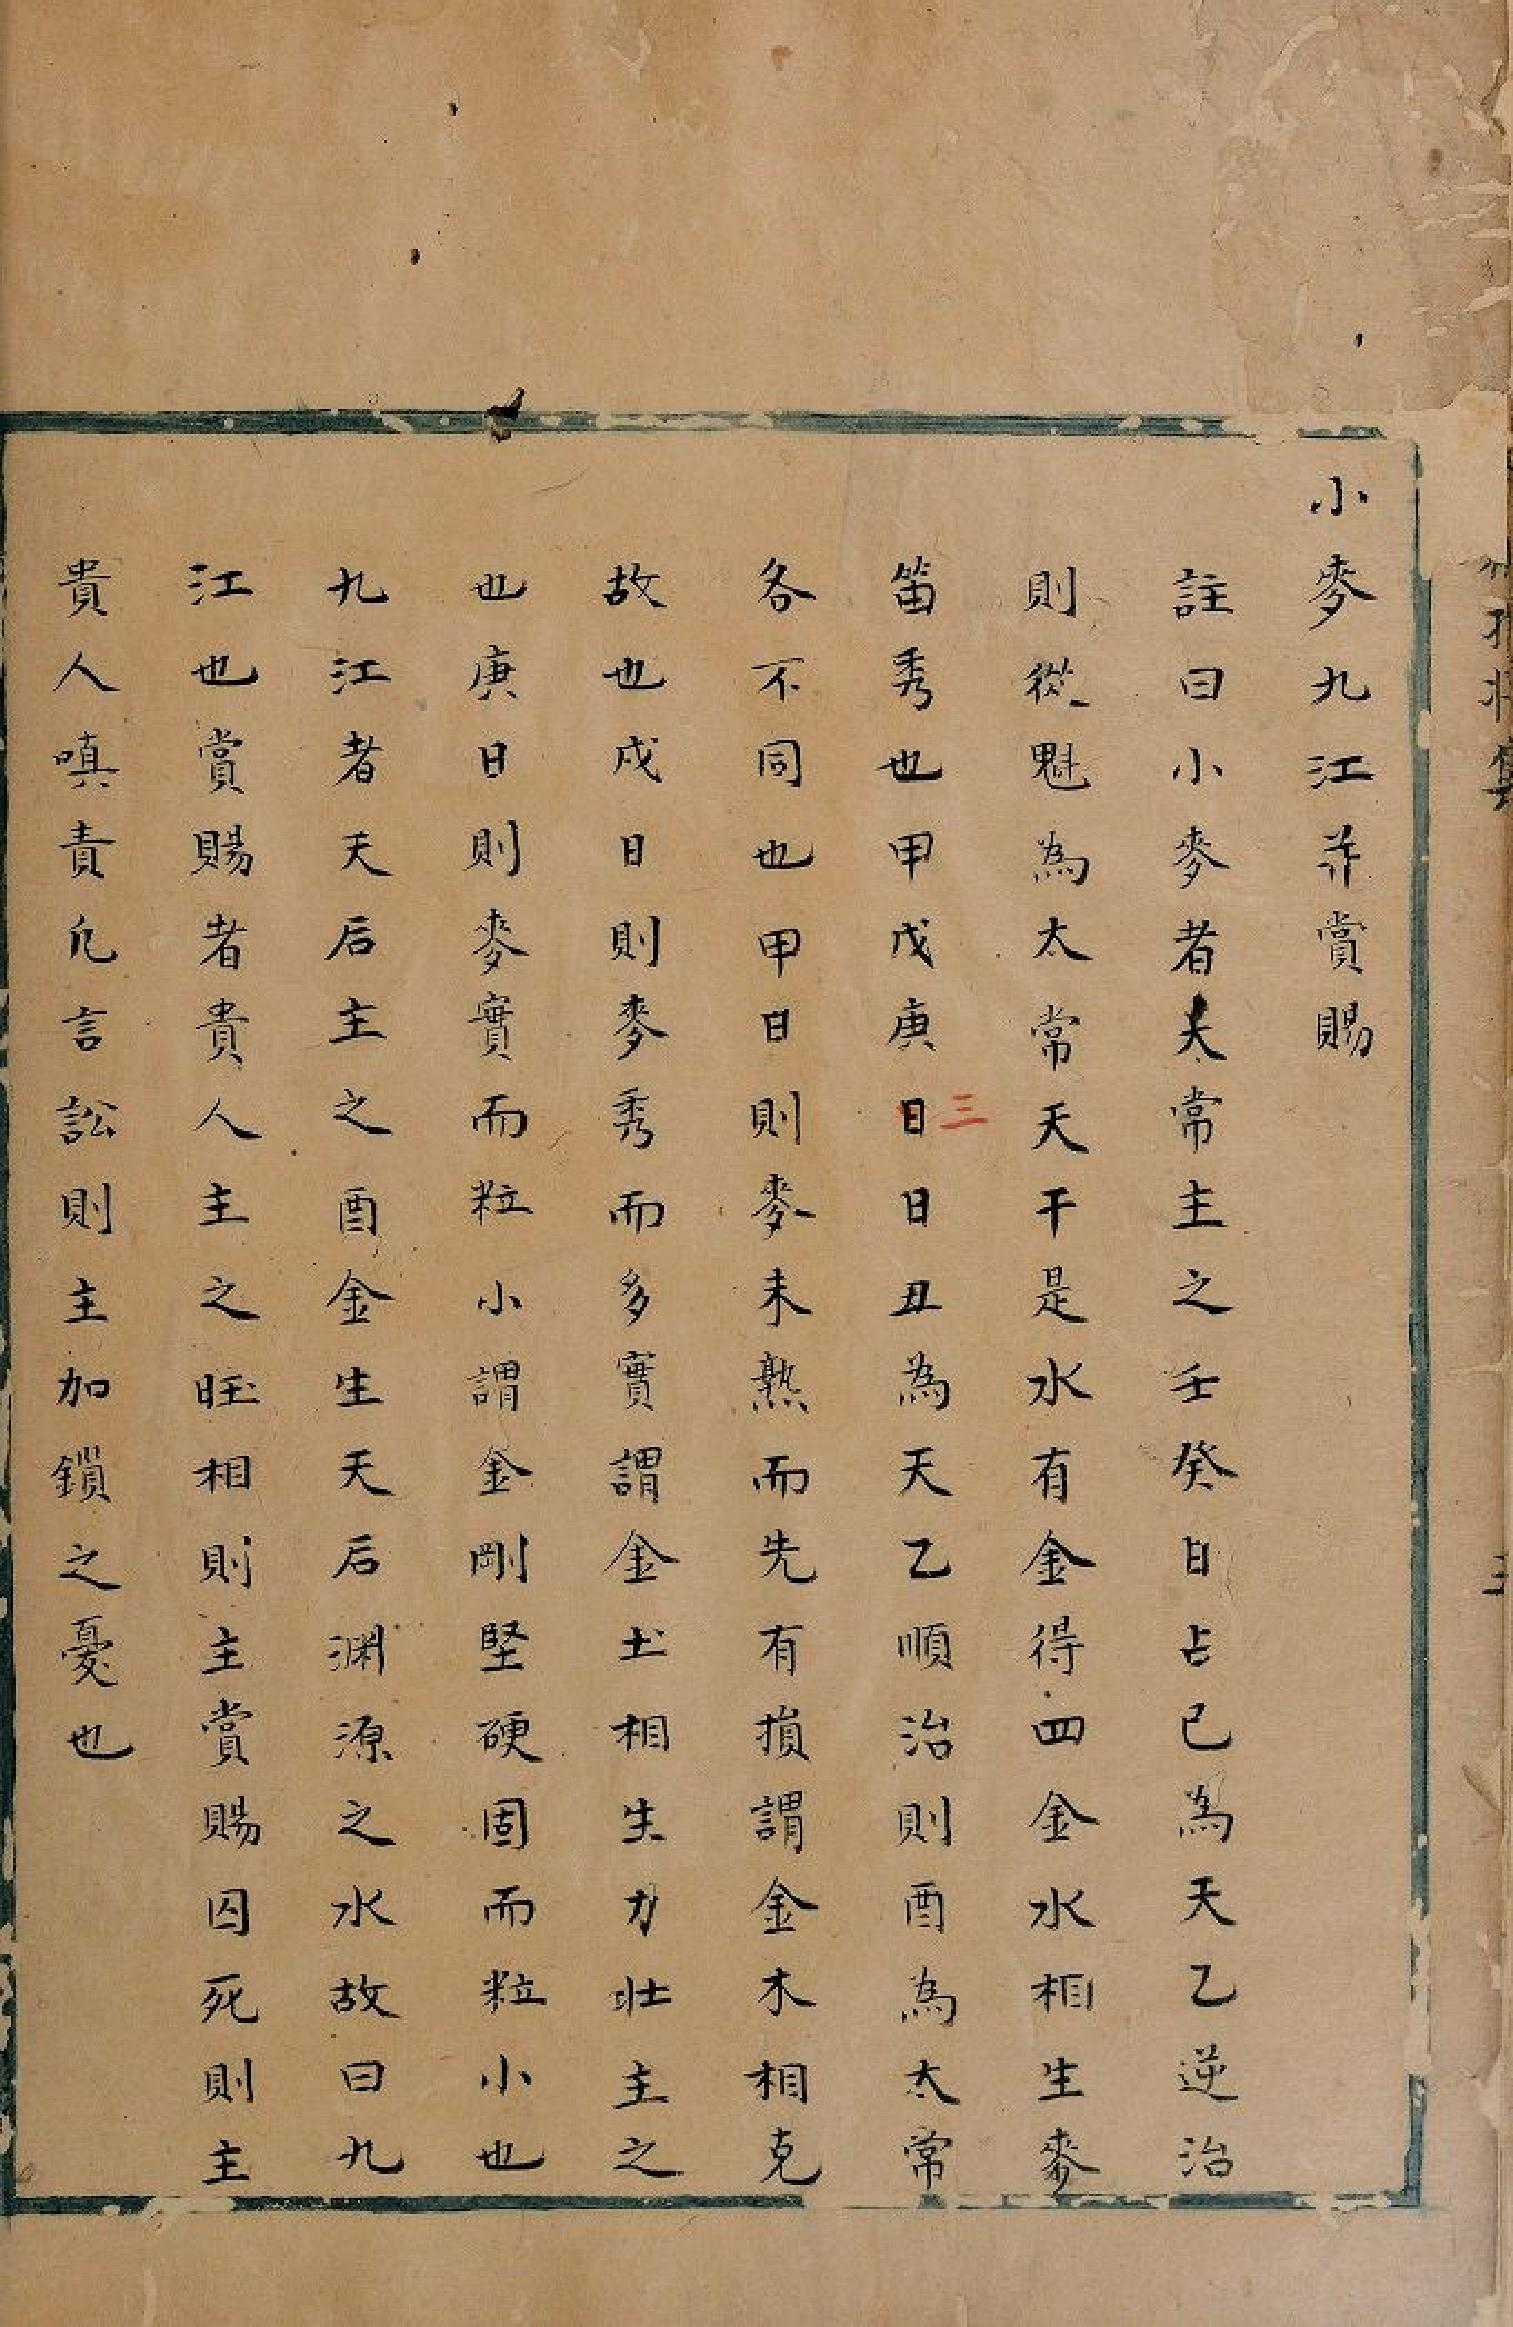 小麥九江并賞賜
註曰小麥者太常主之壬癸日占巳為天乙逆治
則從魁為太常天干是水有金得四金水相生麥
笛秀也甲戊庚日三日丑為天乙順治則酉為太常
各不同也甲日則麥未熟而先有損謂金木相克
故也戊日則麥秀而多實謂金土相生力壯主之
也庚日則麥實而粒小謂金剛堅硬固而粒小也
九江者天后主之酉金生天后淵源之水故曰九
江也賞賜者貴人主之旺相則主賞賜囚死則主
貴人嗔責凢言訟則主加鎖之憂也